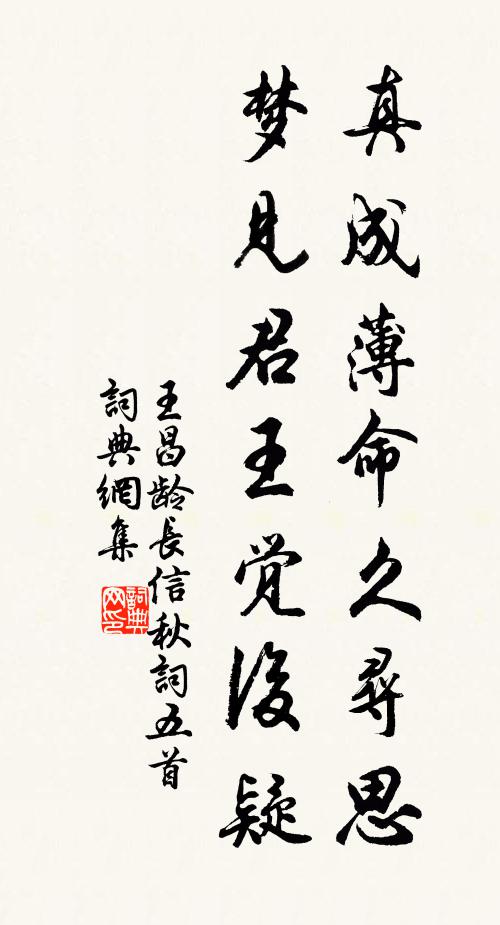 真成薄命久尋思
梦見君王觉後疑
王昌龄長信秋詞五首
詞典網集
詞典
网印